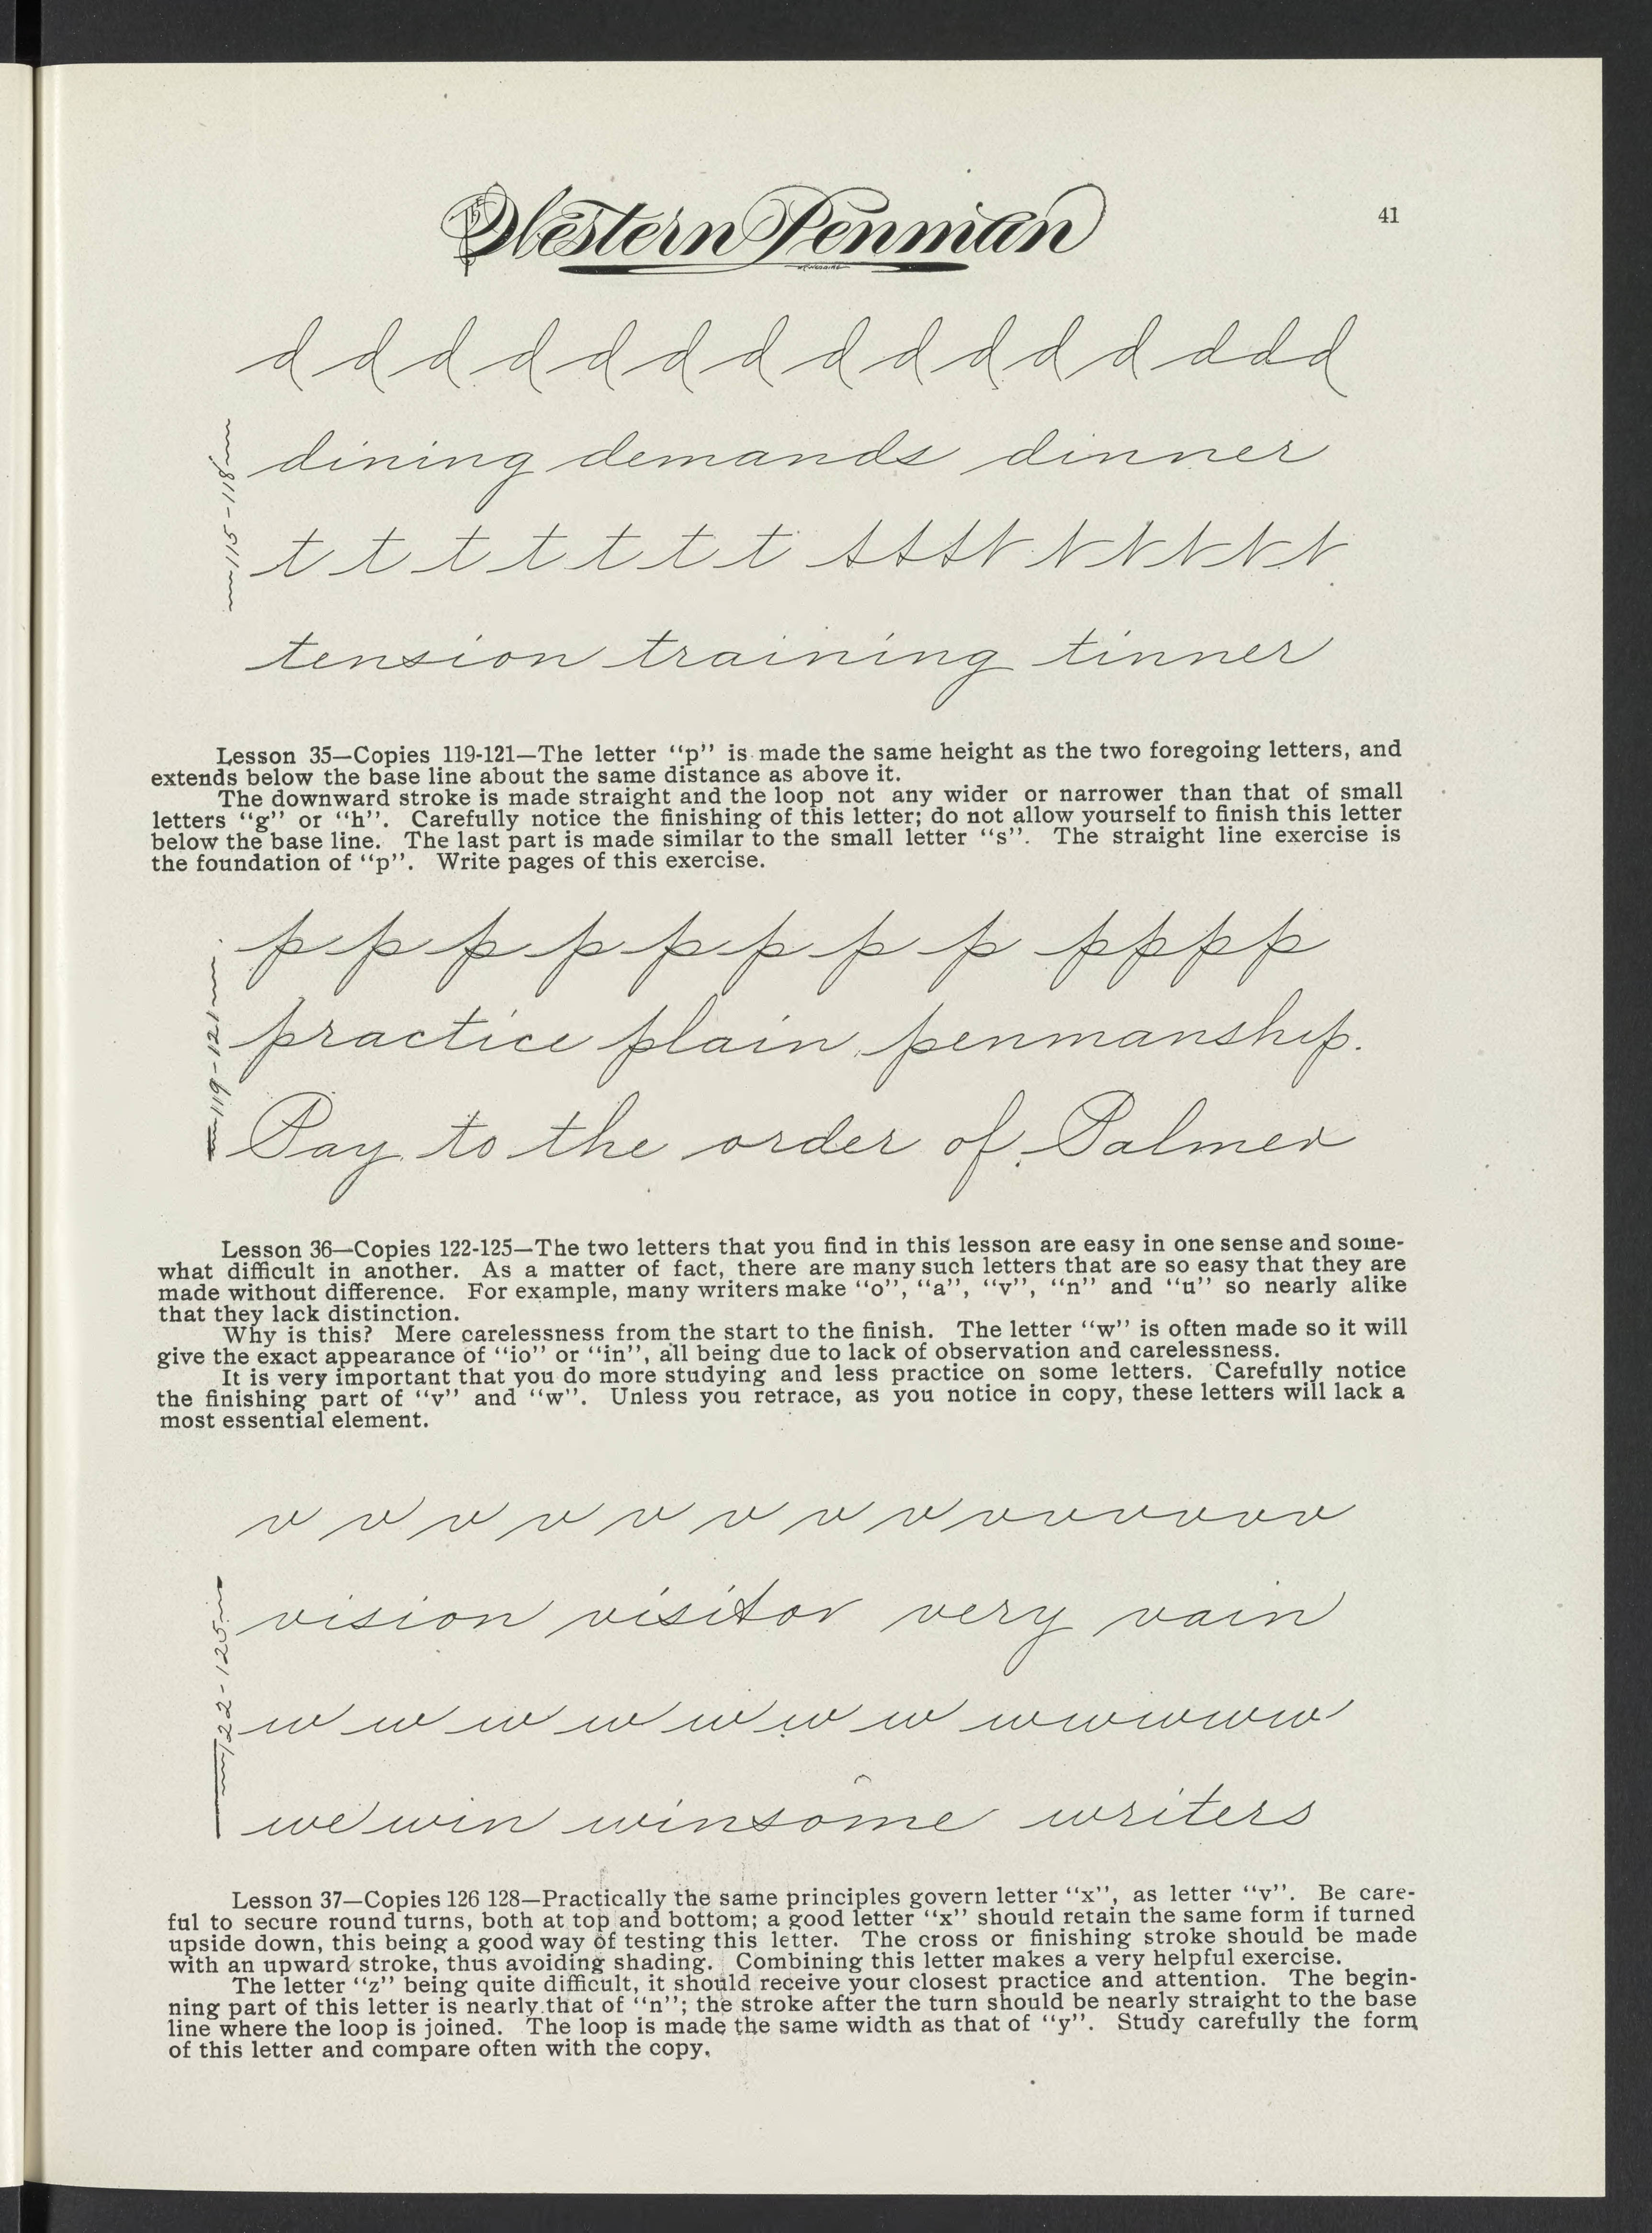 The Western Penman
41
d d d d d d d d d d d d d d d
dining demands dinner
115-118
t t t t t t t t t t t t t t t t t
tension training tinner
Lesson 35—Copies 119-121—The letter "p" is made the same height as the two foregoing letters, and
extends below the base line about the same distance as above it.
The downward stroke is made straight and the loop not any wider or narrower than that of small
letters "g" or "h". Carefully notice the finishing of this letter; do not allow yourself to finish this letter
below the base line. The last part is made similar to the small letter "s". The straight line exercise is
the foundation of "p". Write pages of this exercise.
p p p p p p p p p p p p
119-121
practice plain penmanship.
Pay to the order of Palmer
Lesson 36—Copies 122-125—The two letters that you find in this lesson are easy in one sense and some-
what difficult in another. As a matter of fact, there are many such letters that are so easy that they are
made without difference. For example, many writers make "o", "a", "v", "n" and "u" so nearly alike
that they lack distinction.
Why is this? Mere carelessness from the start to the finish. The letter "w" is often made so it will
give the exact appearance of "io" or "in", all being due to lack of observation and carelessness.
It is very important that you do more studying and less practice on some letters. Carefully notice
the finishing part of "v" and "w". Unless you retrace, as you notice in copy, these letters will lack a
most essential element.
v v v v v v v v v v v v v v
vision visitor very vain
122-125
w w w w w w w w w w w w
we win winsome writers
Lesson 37—Copies 126 128—Practically the same principles govern letter "x", as letter "v". Be care-
ful to secure round turns, both at top and bottom; a good letter "x" should retain the same form if turned
upside down, this being a good way of testing this letter. The cross or finishing stroke should be made
with an upward stroke, thus avoiding shading. Combining this letter makes a very helpful exercise.
The letter "z" being quite difficult, it should receive your closest practice and attention. The begin-
ning part of this letter is nearly that of "n"; the stroke after the turn should be nearly straight to the base
line where the loop is joined. The loop is made the same width as that of "y". Study carefully the form
of this letter and compare often with the copy.